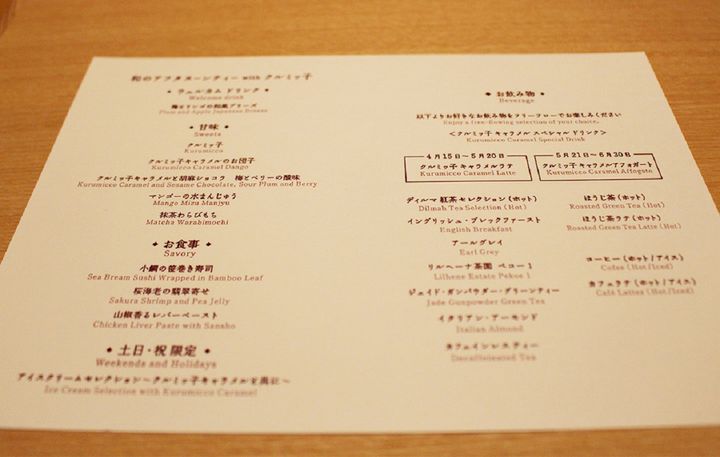 和のアフタヌーンティー with クルミッ子
◆ ウェルカム ドリンク ◆
Welcome drink
梅とリンゴの和風ブリーズ
Plum and Apple Japanese Breeze
◆ 甘味 ◆
Sweets
クルミッ子
Kurumicco
クルミッ子キャラメルのお団子
Kurumicco Caramel Dango
クルミッ子キャラメルと胡麻ショコラ 梅とベリーの酸味
Kurumicco Caramel and Sesame Chocolate, Sour Plum and Berry
マンゴーの水まんじゅう
Mango Mizu Manjyu
抹茶わらびもち
Matcha Warabimochi
◆ お食事 ◆
Savory
小鯛の笹巻き寿司
Sea Bream Sushi Wrapped in Bamboo Leaf
桜海老の翡翠寄せ
Sakura Shrimp and Pea Jelly
山椒香るレバーペースト
Chicken Liver Paste with Sansho
◆ 土日・祝 限定 ◆
Weekends and Holidays
アイスクリームセレクション～クルミッ子キャラメルと共に～
Ice Cream Selection with Kurumicco Caramel
◆ お飲み物 ◆
Beverage
以下よりお好きなお飲み物をフリーフローでお楽しみください
Enjoy a free-flowing selection of your choice.
<クルミッ子 キャラメル スペシャル ドリンク>
Kurumicco Caramel Special Drink
4月15日～5月20日
クルミッ子 キャラメルラテ
Kurumicco Caramel Latte
5月21日～6月30日
クルミッ子 キャラメルアフォガート
Kurumicco Caramel Affogato
ディルマ 紅茶セレクション (ホット)
Dilmah Tea Selection (Hot)
イングリッシュ・ブレックファースト
English Breakfast
アールグレイ
Earl Grey
リルヘーナ茶園 ペコー1
Lilhene Estate Pekoe 1
ジェイド・ガンパウダー・グリーンティー
Jade Gunpowder Green Tea
イタリアン・アーモンド
Italian Almond
カフェインレスティー
Decaffeinated Tea
ほうじ茶 (ホット)
Roasted Green Tea (Hot)
ほうじ茶ラテ (ホット)
Roasted Green Tea Latte (Hot)
コーヒー (ホット/アイス)
Cofee (Hot/Iced)
カフェラテ (ホット/アイス)
Café Lattes (Hot/Iced)